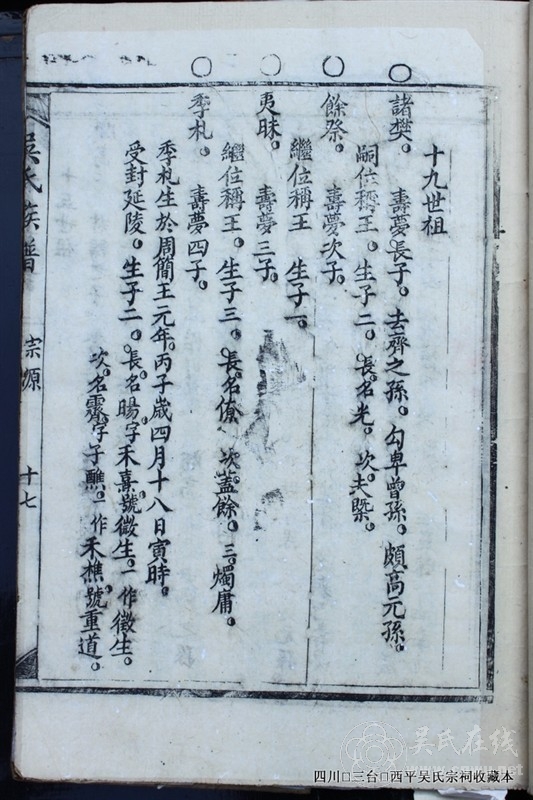 十九世祖
諸樊。壽夢長子。去齊之孫。勾卑曾孫。頗高元孫。
嗣位稱王。生子二。長。名光。次。夫槩。
餘祭。壽夢次子。
繼位稱王　生子一。
夷昧。壽夢三子。
繼位稱王。生子三。長。名僚　次。蓋餘。三。燭庸。
季札。壽夢四子。
季札生於周簡王元年。丙子歲四月十八日寅時。
受封延陵。生子二。長。名暘字禾熹。號徵生。一作徵生。
次。名霽。字子醮。一作禾樵。號重道。
吳氏族譜
宗源
十七
吴氏在线
四川□三台□西平吴氏宗祠收藏本